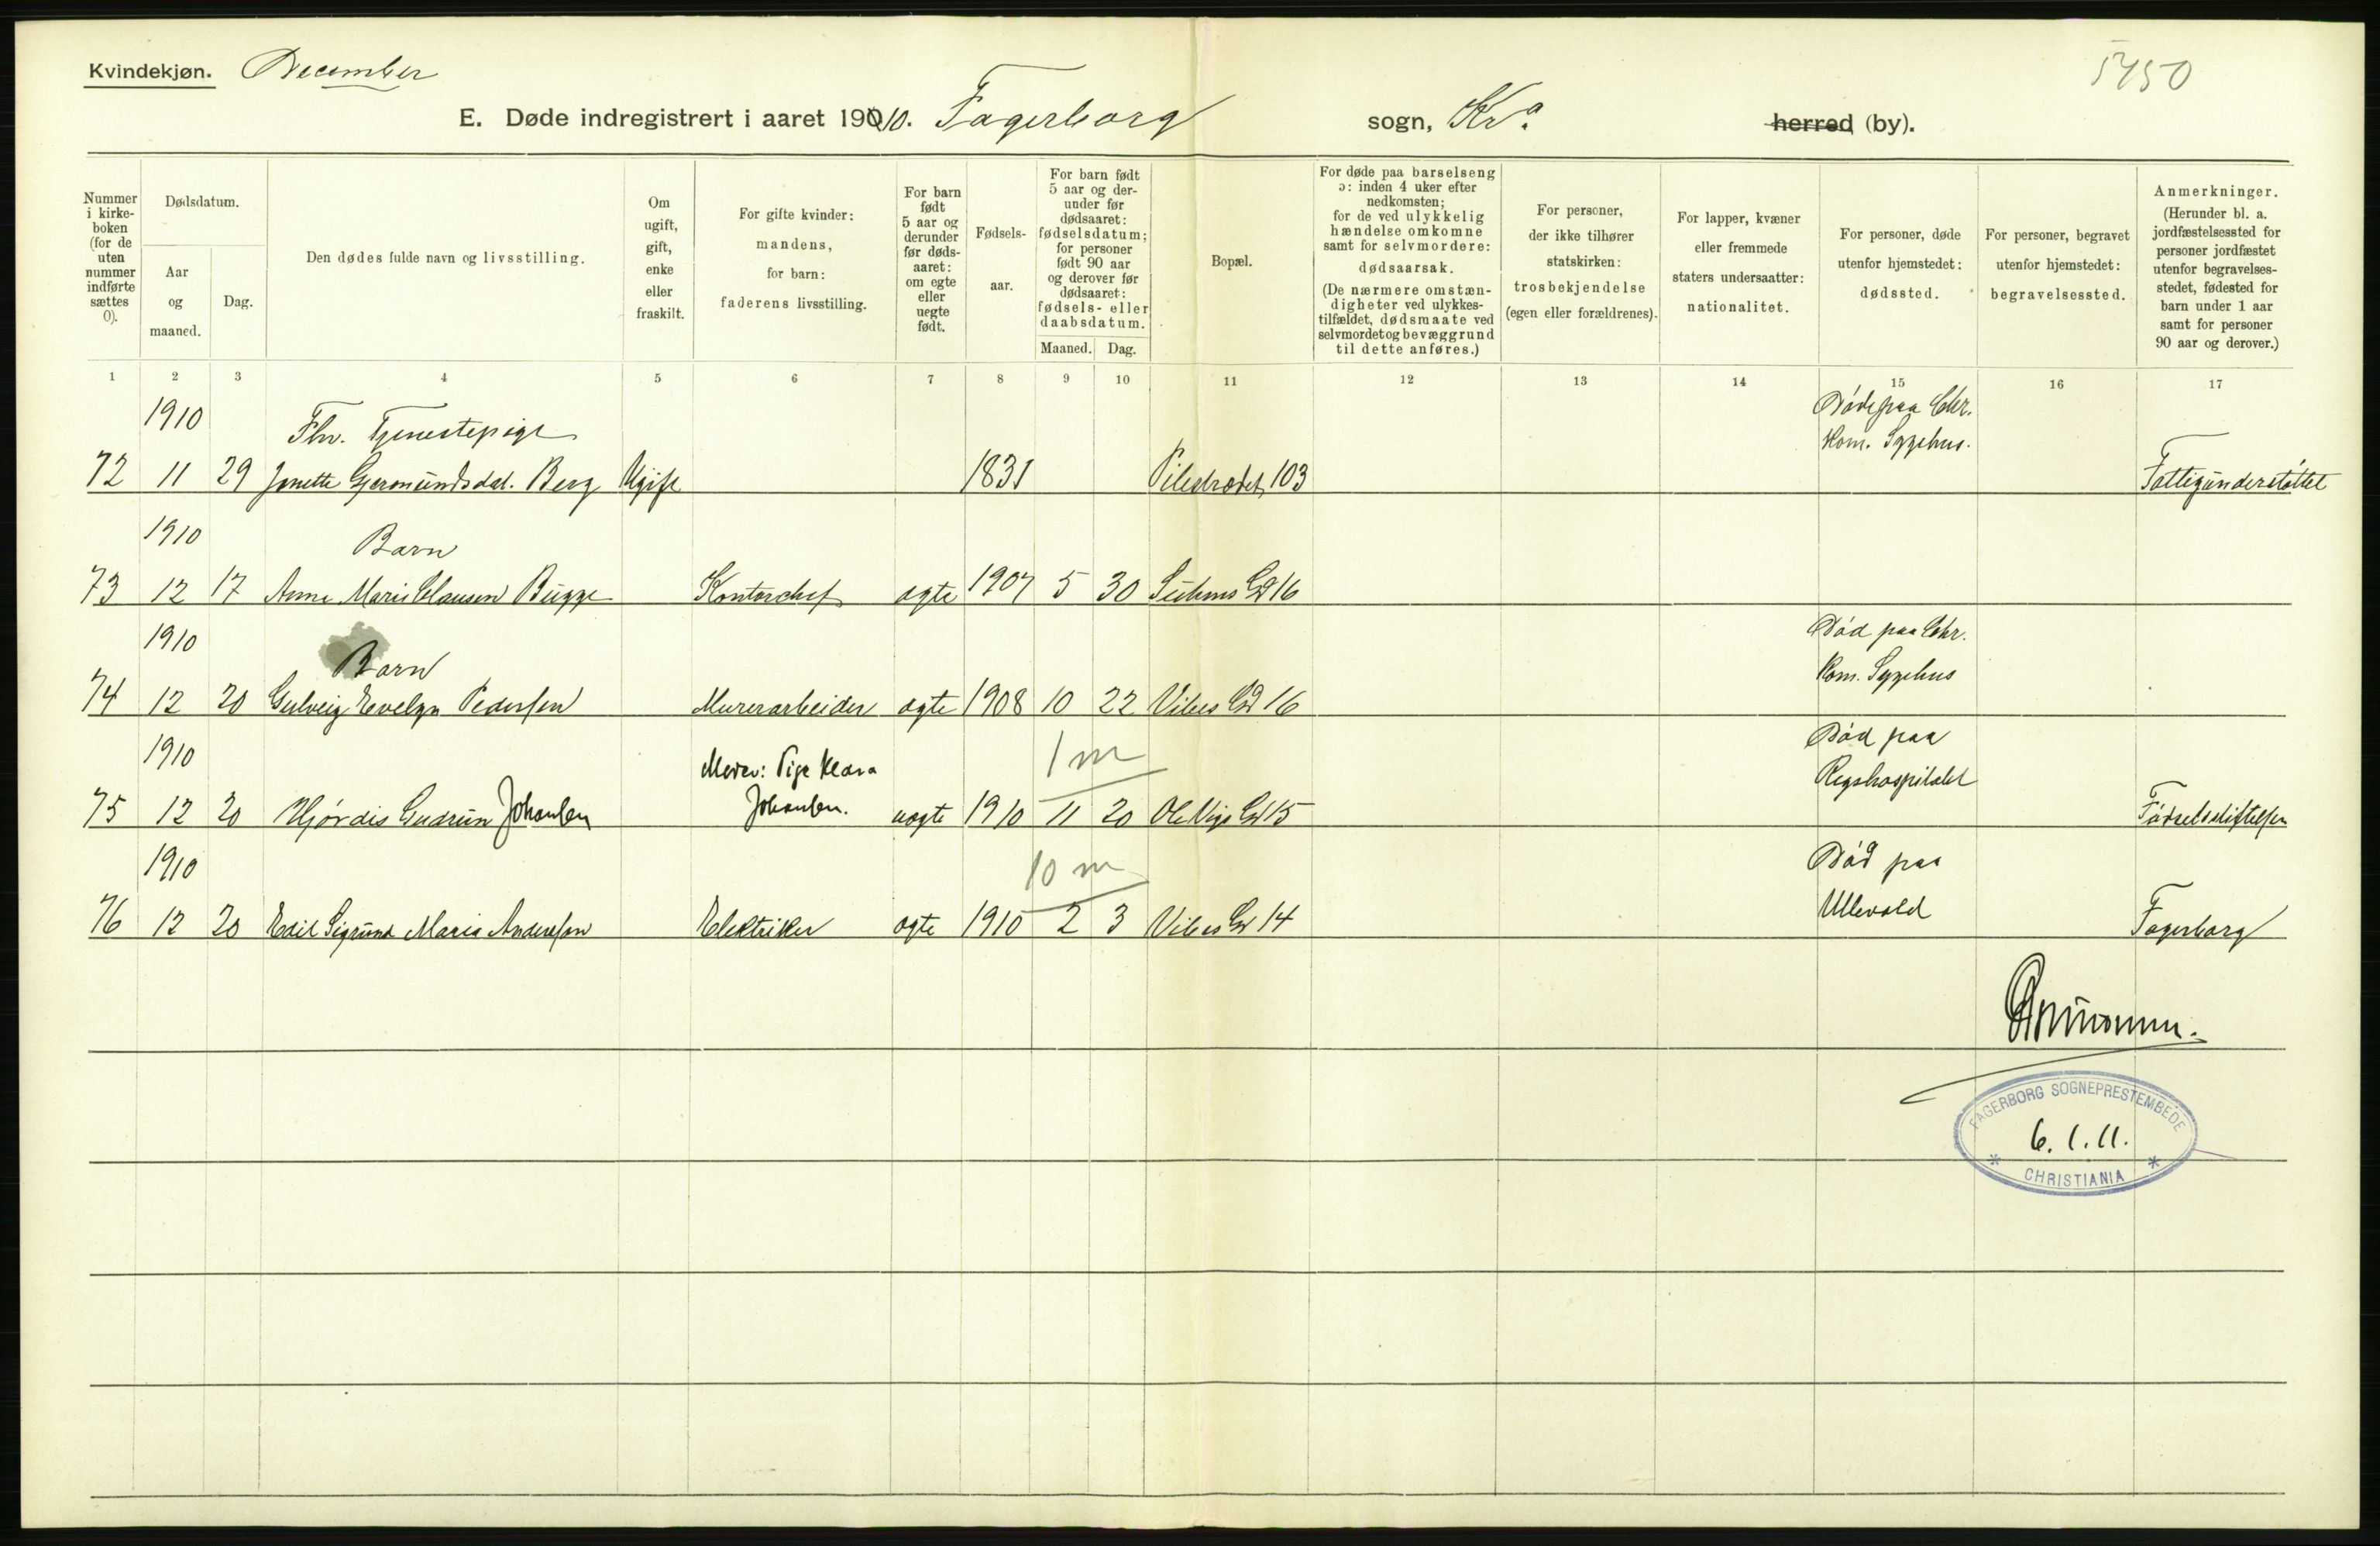 Kvindekjøn. December
5450
E. Døde indregistrert i aaret 1910. Fagerborg sogn, Kra. herred (by).
Nummer i kirkeboken (for de uten nummer indførte sættes 0).
Dødsdatum.
Aar og maaned.
Dag.
Den dødes fulde navn og livsstilling.
Om ugift, gift, enke eller fraskilt.
For gifte kvinder: mandens, for barn: faderens livsstilling.
For barn født 5 aar og derunder før dødsaaret: om egte eller uegte født.
Fødselsaar.
For barn født 5 aar og derunder før dødsaaret: fødselsdatum; for personer født 90 aar og derover før dødsaaret: fødsels- eller daabsdatum.
Maaned. Dag.
Bopæl.
For døde paa barselseng ɔ: inden 4 uker efter nedkomsten; for de ved ulykkelig hændelse omkomne samt for selvmordere: dødsaarsak. (De nærmere omstændigheter ved ulykkestilfældet, dødsmaate ved selvmordet og bevæggrund til dette anføres.)
For personer, der ikke tilhører statskirken: trosbekjendelse (egen eller forældrenes).
For lapper, kvæner eller fremmede staters undersaatter: nationalitet.
For personer, døde utenfor hjemstedet: dødssted.
For personer, begravet utenfor hjemstedet: begravelsessted.
Anmerkninger. (Herunder bl. a. jordfæstelsessted for personer jordfæstet utenfor begravelsesstedet, fødested for barn under 1 aar samt for personer 90 aar og derover.)
1 2 3 4 5 6 7 8 9 10 11 12 13 14 15 16 17
1910 Fhv. Tjenestepige Døde paa Chr.
Kom. Sygehus.
72 11 29 Jonette Gjermundsdat. Berg Ugift 1831 Pilestrædet 103 Fattigunderstøttet
1910 Barn
73 12 17 Anne Marie Clausen Bugge Kontorchef ægte 1907 5 30 Suhms Gd 16
1910 Barn Død paa Chr.
Kom. Sygehus
74 12 20 Gulveig Evelyn Pedersen Murerarbeider ægte 1908 10 22 Vibes Gd 16
1910 Moder: Pige Klara 1 m Død paa
Rigshospitalet
75 12 20 Hjørdis Gudrun Johansen Johansen. uægte 1910 11 20 Ole Vigs Gd 15 Fødselsstiftelsen
1910 10 m Død paa
Ullevold
76 12 20 Edil Sigrund Marie Andersen Elektriker ægte 1910 2 3 Vibes Gd 14 Fagerborg
FAGERBORG SOGNEPRESTEMBEDE
6.1.11.
* CHRISTIANIA *